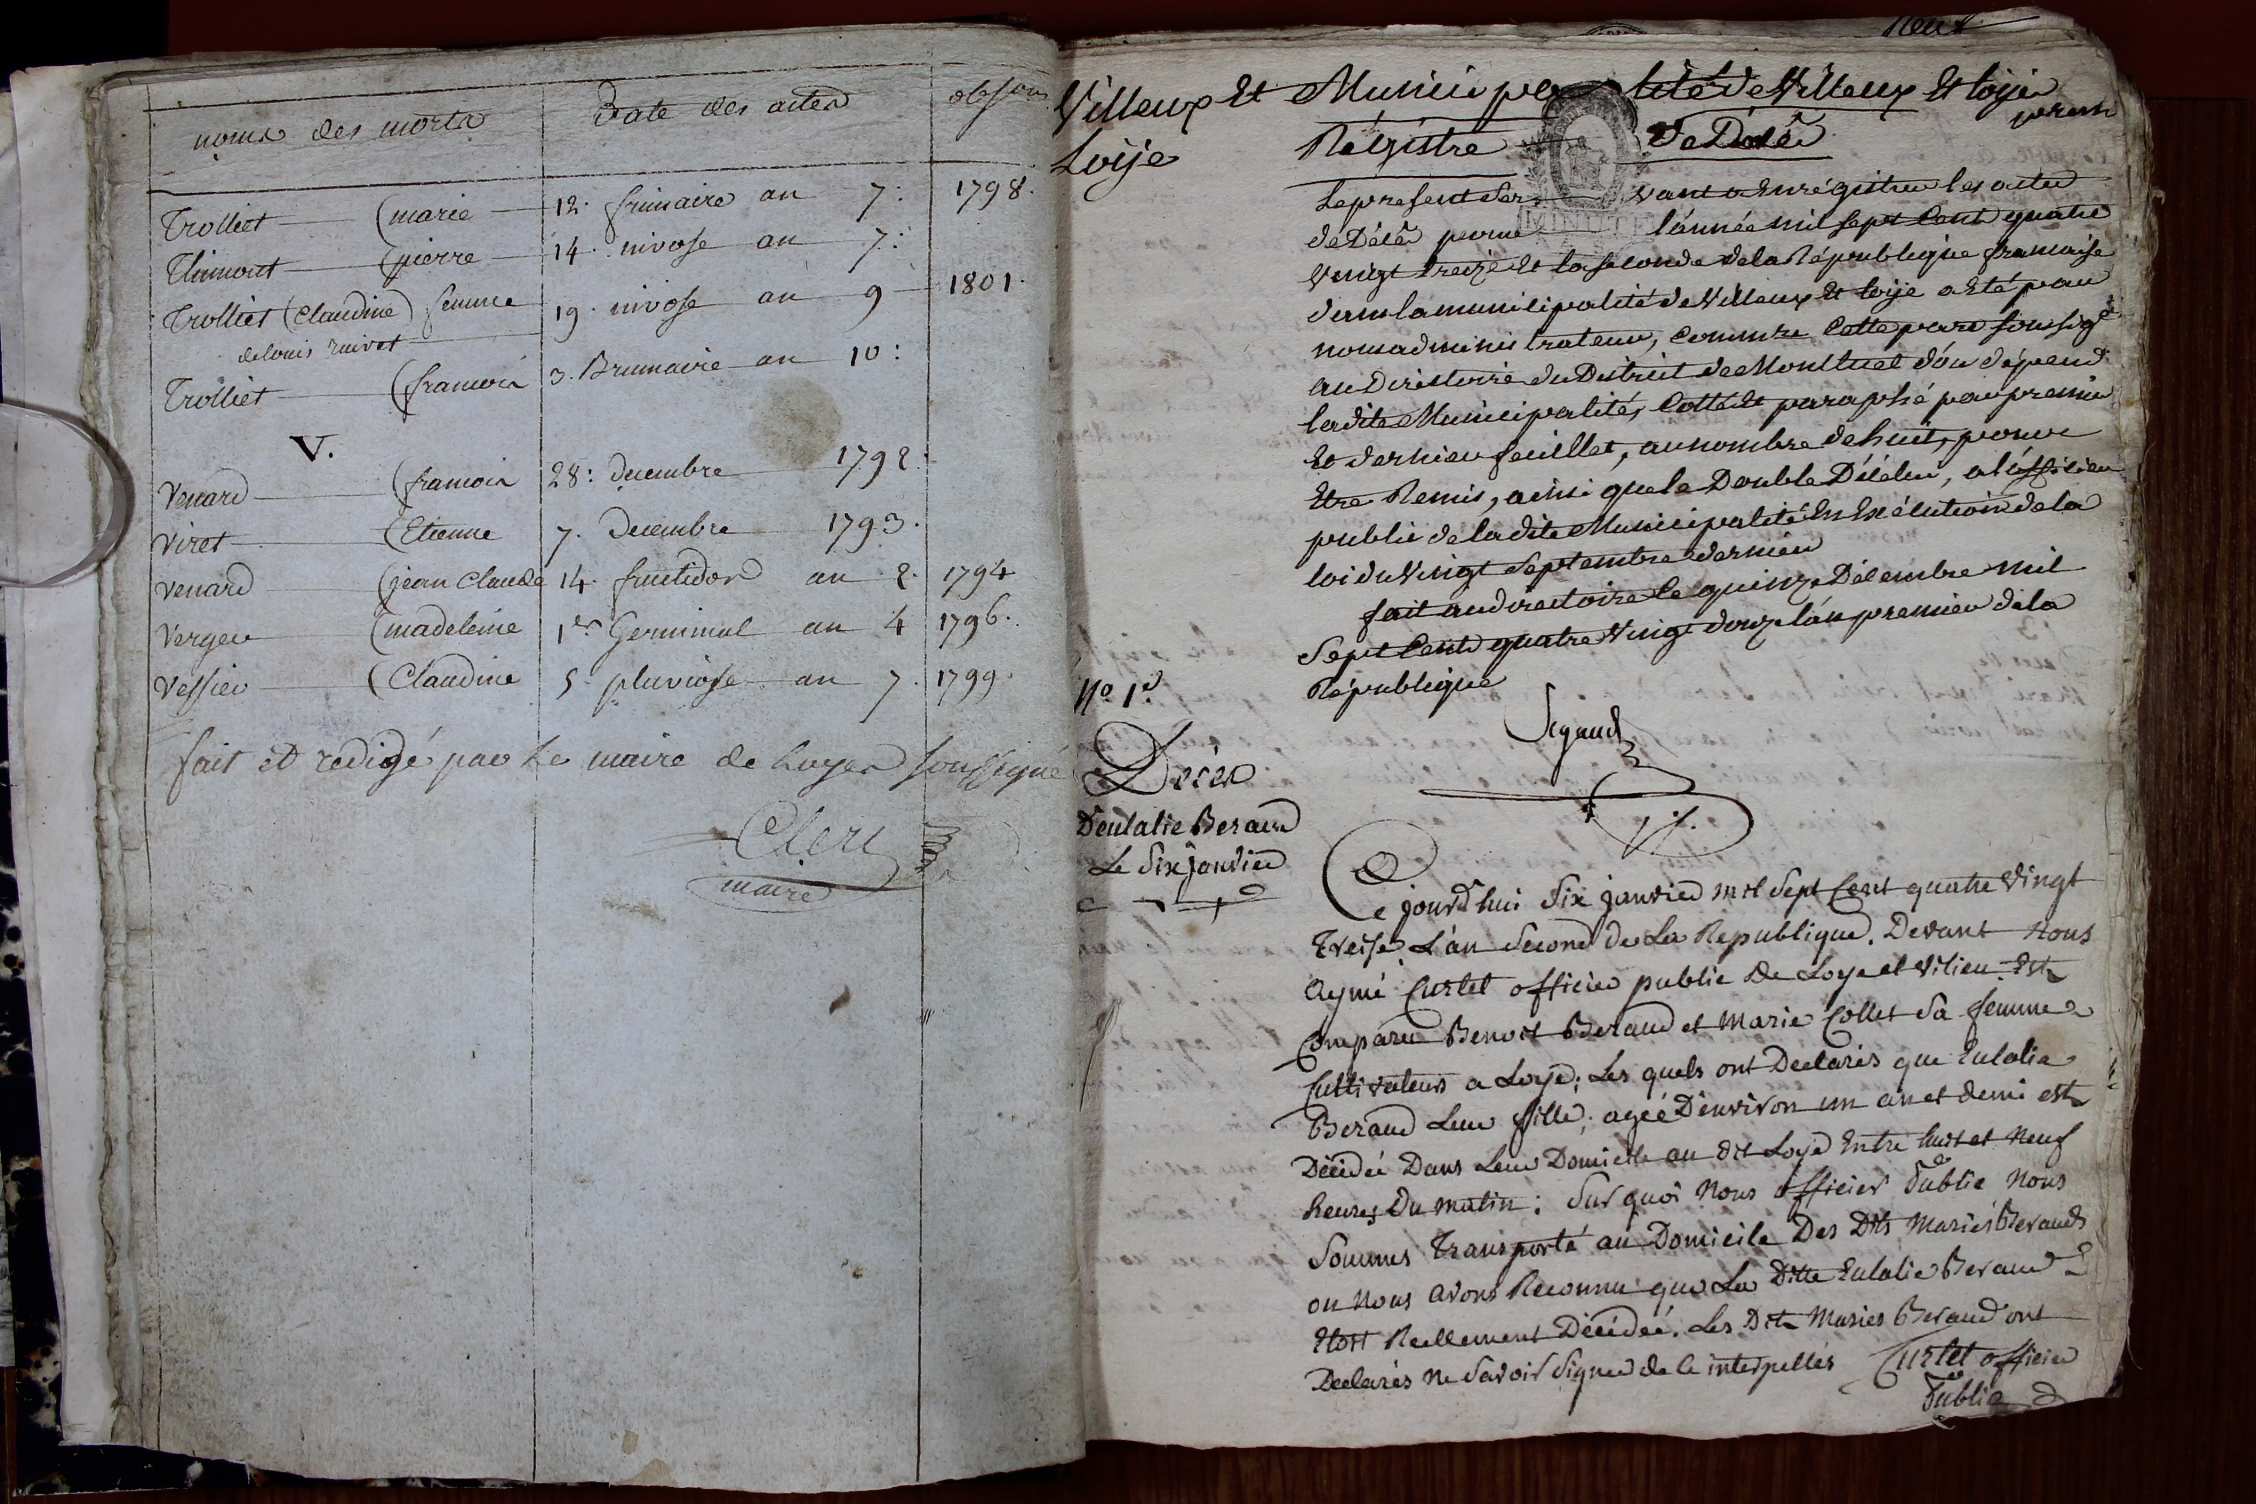 noms des morts Date des actes obsons
Trolliet (marie 12. frimaire an 7: 1798.
Thimont (pierre 14. nivose an 7:
Trolliet (Claudine) femme 19. nivose an 9 1801.
de louis ruivet
Trolliet (francois 3. Brumaire an 10:
V.
Venard (francois 28: decembre 1792.
Viret (Etienne 7. Decembre 1793.
Venard (jean Claude 14. fructidor an 2. 1794
Verger (madeleine 1er Germinal an 4 1796.
Vessier (Claudine 5 pluviose an 7. 1799.
fait et redigé par Le maire de Loyes soussigné
Clerc
maire
Villeux Et
Loije
Municipalité de Villeux Et loije
premr
Régistre de Décès
Le present servant a Enrégistrer les actes
de Décès pour l'année mil sept Cent quatre
Vingt treize Et la seconde de la République francaise
dans la municipalité de Villeux Et loije a Eté par
nous administrateur, Commre Cette part soussigé
au Directoire du District de Montluel d'ou dépend
ladite Municipalité, Cotté Et paraphé par premier
Et dernier feuillet, au nombre de huit, pour
Etre Remis, ainsi que le Double D'icelui, a l'officier
public de ladite Municipalité En Exécution de la
loi du Vingt Septembre dernier
fait au directoire le quinze Décembre mil
Sept Cent quatre Vingt douze l'an premier de la
République
Sigaud
No 1er
Décès
D'eulalie Beraud
Le Six Janvier
Ce jourd'hui Six janvier mil Sept Cent quatre Vingt
Treise L'an Second de La Republique. Devant Nous
Aymé Curtet officier public De Loye et Vilieu Est
Comparu Benoit Beraud et Marie Collet Sa femme
Cultivateurs a Loye; Les quels ont Declarés que Eulalie
Beraud Leur fille, ageé D'environ un an et demi est
Décédée Dans Leur Domicile au dit Loye Entre huit et Neuf
heures Du Matin; Sur quoi Nous officier Public Nous
Sommes Transporté au Domicile Des Dits Mariés Berauds
ou Nous avons Reconnu que La Ditte Eulalie Beraud
Etoit Reellement Décédée. Les Dits Mariés Beraud ont
Declarés Ne Savoir Signer de ce interpellés Curtet officier
Public